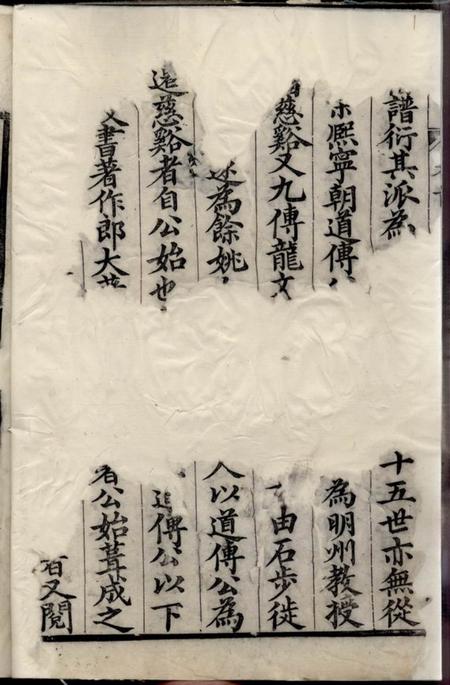 譜衍其派為十五世亦無從
熙寧朝道傳為明州教授
慈谿又九傳龍文由石步徙
為餘姚以道傳公為
慈谿者自公始也傳公以下
書著作郎大公始葺成之
又閱